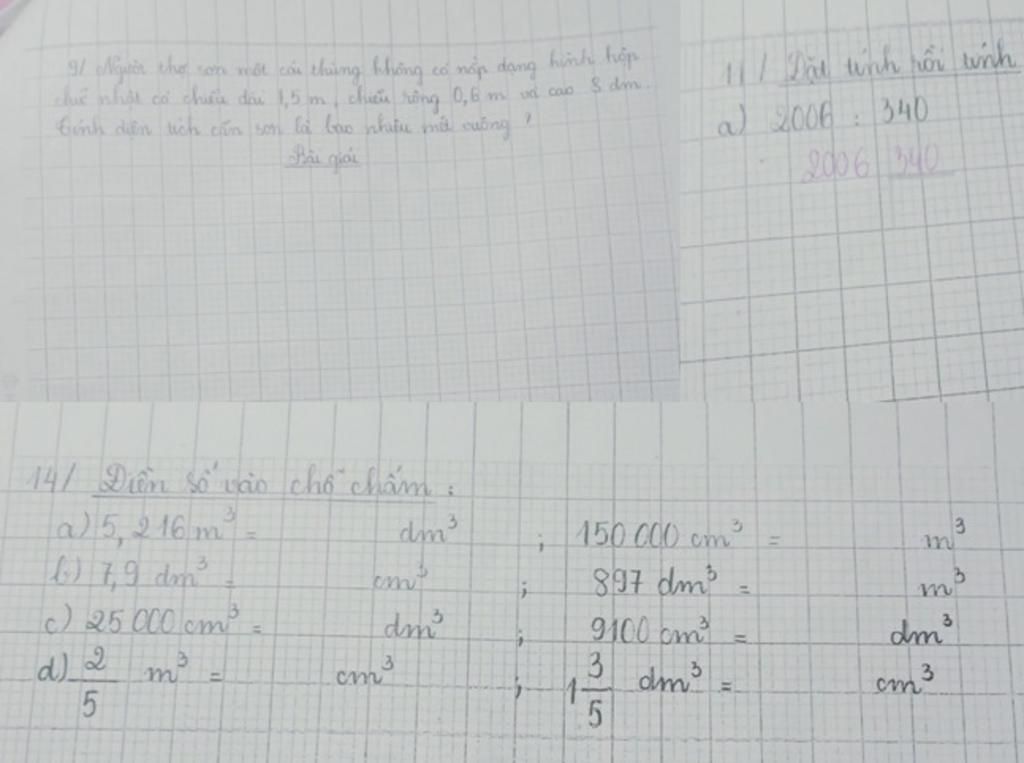 9/ Người thợ sơn một cái thùng không có nắp dạng hình hộp
chữ nhật có chiều dài 1,5 m, chiều rộng 0,6 m và cao 8 dm.
Tính diện tích cần sơn là bao nhiêu mét vuông?
Bài giải
11/ Đặt tính rồi tính
a) 2006 : 340
2006 340
14/ Điền số vào chỗ chấm :
a) 5,216 m³ = dm³ ; 150 000 cm³ = m³
b) 7,9 dm³ = cm³ ; 897 dm³ = m³
c) 25 000 cm³ = dm³ ; 9100 cm³ = dm³
d) 2/5 m³ = cm³ ; 1 3/5 dm³ = cm³